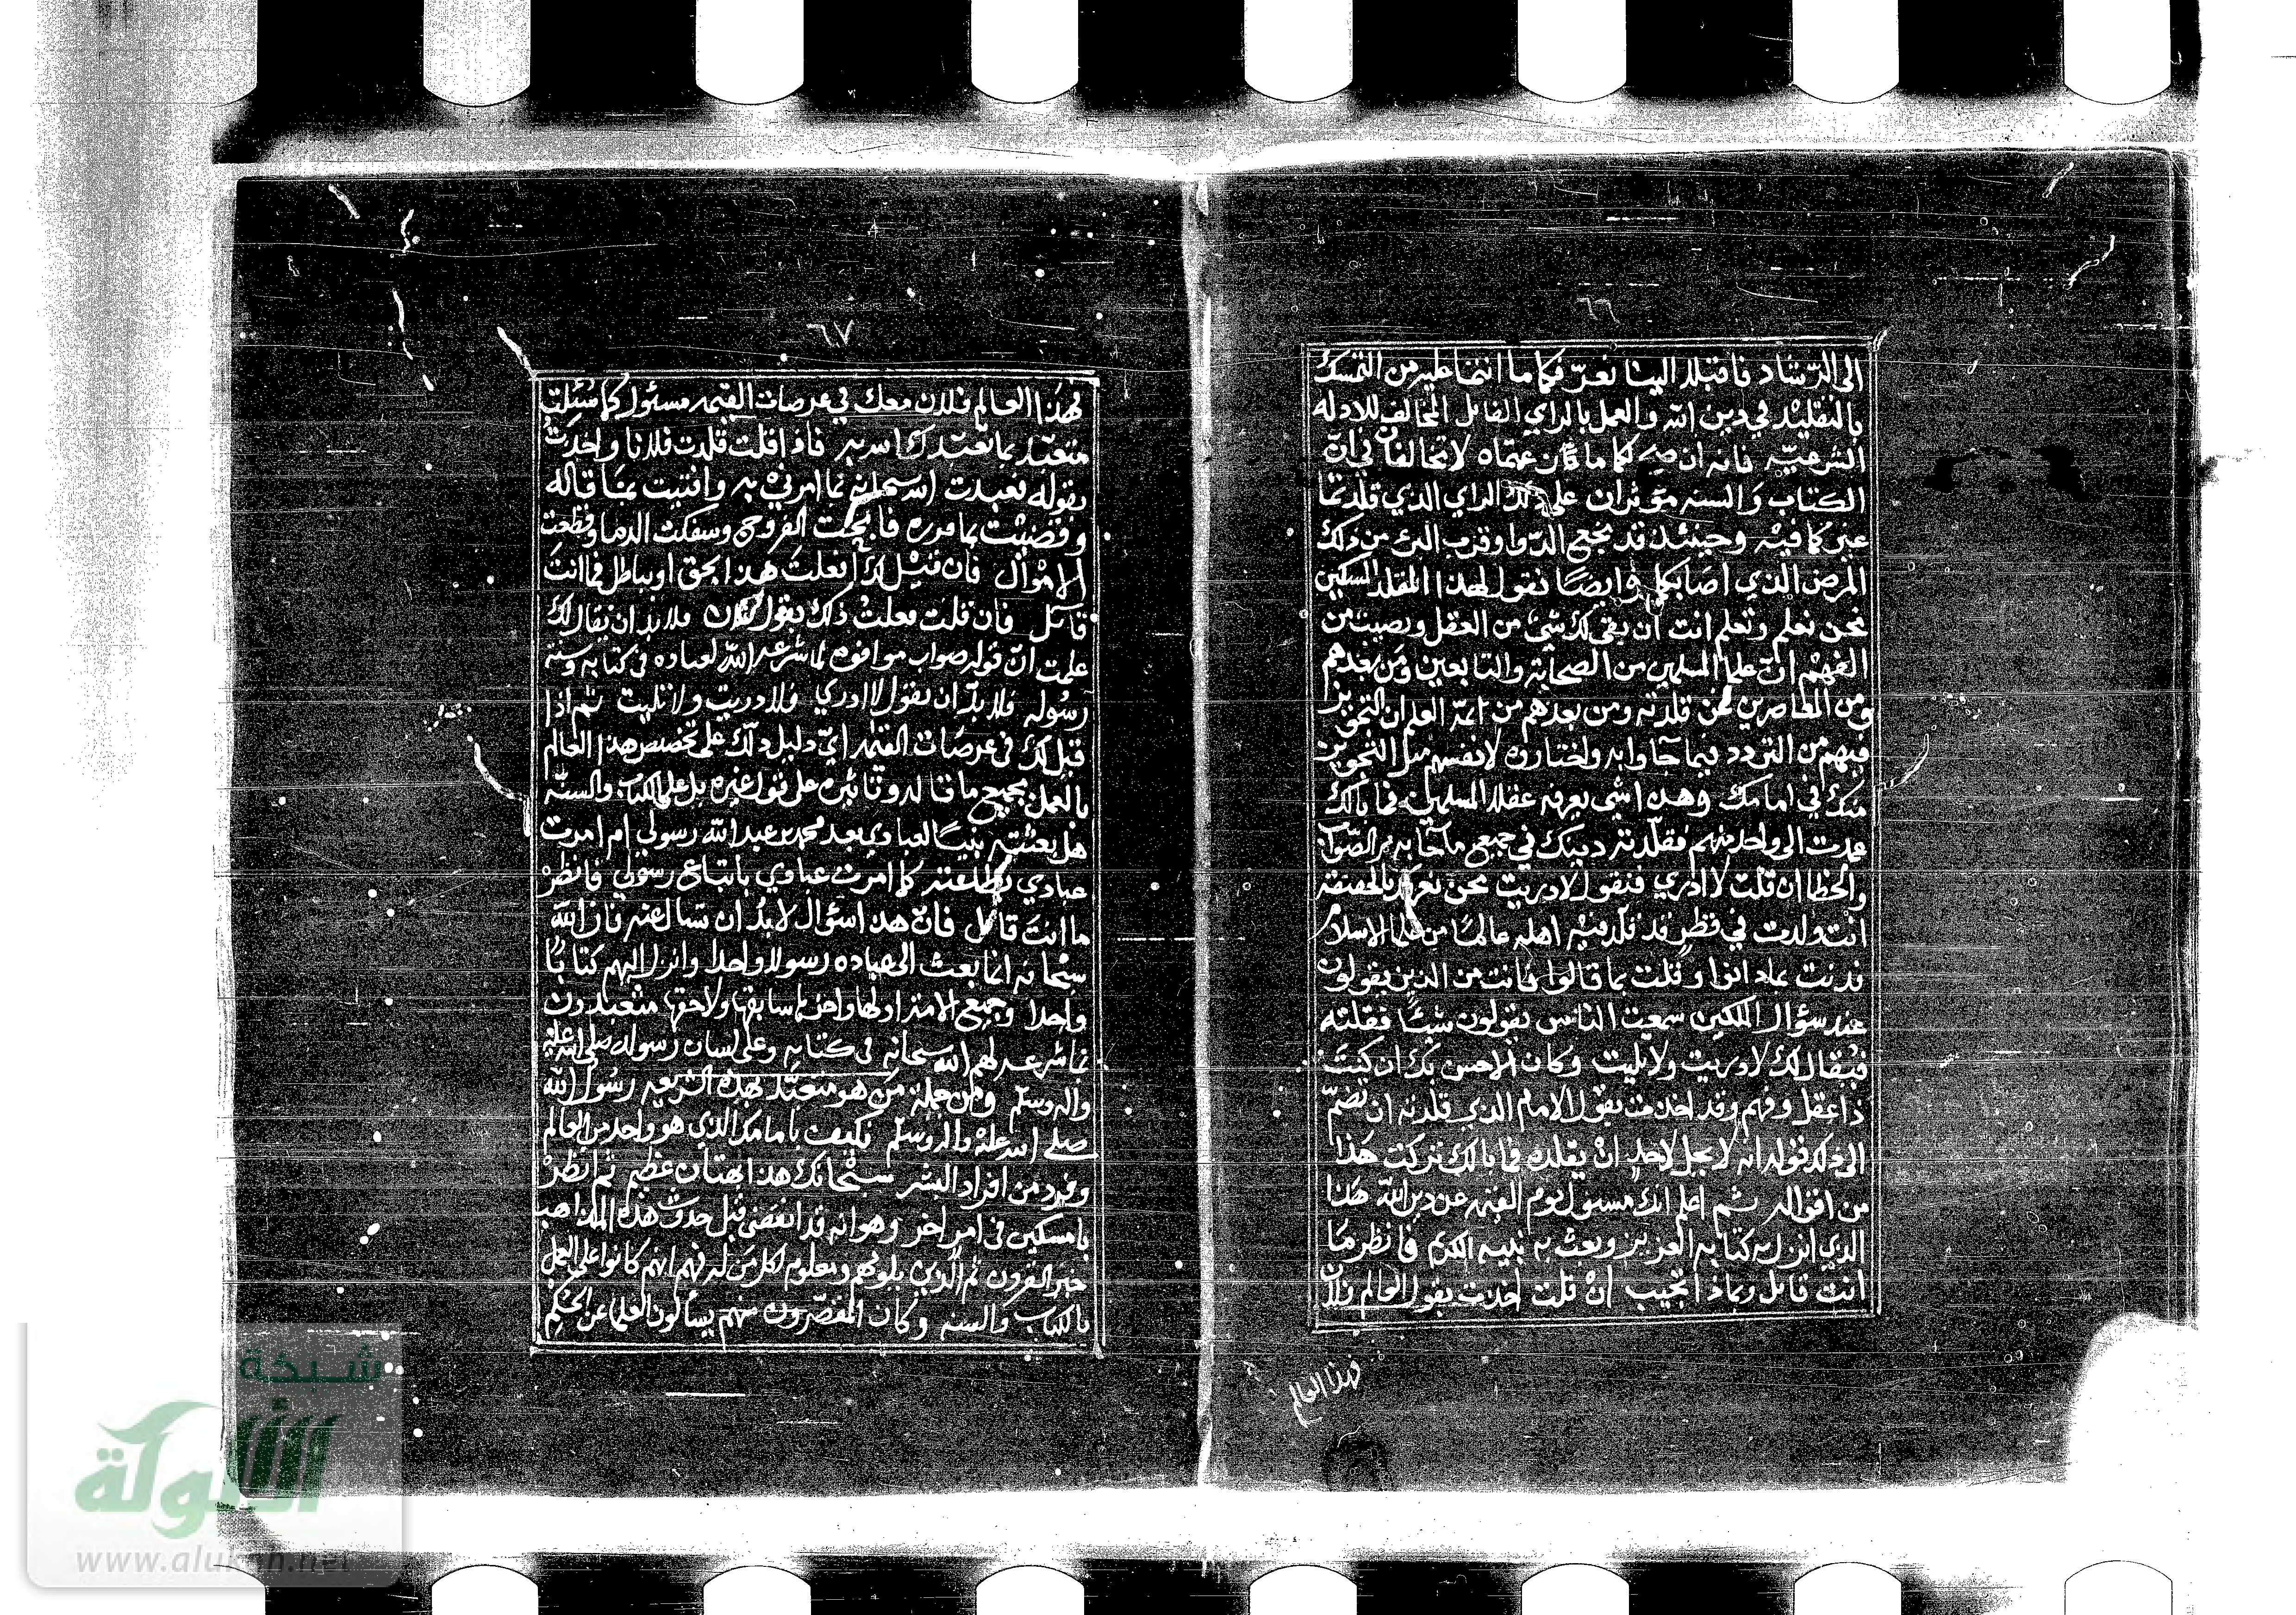 ٦٦
الى الرشاد فاقبلا الينا نعرفكما ما انتما عليه من التمسك
بالتقليد في دين الله والعمل بالراي القائل المخالف للادله
الشرعيه فانه ان صح كما عمتاه لا تخالفان في ان
الكتاب والسنه موثران على ذلك الراي الذي قلدتما
غير كافيه وحينئذ قد ينجع الدوا وقرب البرء من ذلك
المرض الذي اصابكما وايضا نقول لهذا المقلد المسكين
نحن نعلم وتعلم انت ان بقى لك شيء من العقل ونصيب من
الفهم ان علما المسلمين من الصحابة والتابعين ومن بعدهم
ومن المعاصرين لمن قلدته ومن بعدهم من ائمة العلم ان التجويز
فيهم من التردد فيما جاوا به واختاروه لانفسهم مثل التجويز
منك في امامك وهذا شي يعرفه عقلا المسلمين فما بالك
عمدت الى واحد منهم فقلدته دينك في جميع ما جا به من الصواب
والخطا ان قلت لا ادري فنقول لا دريت نحن نعرفك بالحقيقة
انت ولدت في قطر قد قلد فيه اهله عالما من علما الاسلام
فدنت بما دانوا وقلت بما قالوا فانت من الذين يقولون
عند سؤال الملكين سمعت الناس يقولون شيئا فقلته
فيقال لك لا دريت ولا تليت وكان الاحسن بك ان كنت
ذا عقل وفهم وقد اخذت بقول الامام الذي قلدته ان تضم
الى ذلك قوله انه لا يحل لاحد ان يقلده فما بالك تركت هذا
من اقواله ثم اعلم انك مسئول يوم القيمه عن دين الله هذا
الذي انزل به كتابه العزيز وبعث به نبيه الكريم فانظر ما
انت قائل وبماذا تجيب ان قلت اخذت بقول العالم فلان
فهذا العالم
٦٧
فهذا العالم فلان معك في عرصات القيمه مسئول كما سئلت
متعبد بما تعبدك الله به فاذا قلت قلدت فلانا واخذت
بقوله فعبدت الله سبحانه بما امرني به وافتيت بما قاله
وقضيت بما قرره فابحت الفروج وسفكت الدما وقطعت
الاموال فان قيل لك افعلت هذا بحق او بباطل فما انت
قائل فان قلت فعلت ذلك بقول فلان فلا بد ان يقال لك
علمت ان قوله صواب موافق لما شرعه الله لعباده في كتابه وسنة
رسوله فلا بد ان تقول لا ادري فلا دريت ولا تليت ثم اذا
قيل لك في عرصات القيمه اي دليل دلك على تخصيص هذا العالم
بالعمل بجميع ما قاله وتاثيره على قول غيره بل على الكتاب والسنه
هل بعثته نبيا لعبادي بعد محمد بن عبد الله رسولي ام امرت
عبادي بطاعته كما امرت عبادي باتباع رسولي فانظر
ما انت قائل فان هذا سؤال لا بد ان تسال عنه فان الله
سبحانه انما بعث الى عباده رسولا واحدا وانزل اليهم كتابا
واحدا وجميع الامة اولها واخرها سابقها ولاحقها متعبدون
بما شرعه لهم الله سبحانه في كتابه وعلى لسان رسوله صلى الله عليه
واله وسلم ومن جملة من هو متعبد بهذه الشريعه رسول الله
صلى الله عليه واله وسلم فكيف بامامك الذي هو واحد من العالم
وفرد من افراد البشر سبحانك هذا بهتان عظيم ثم انظر
يا مسكين في امر اخر وهو انه قد انقضى قبل حدوث هذه المذاهب
خير القرون ثم الذين يلونهم ومعلوم لكل من له فهم انهم كانوا على العمل
بالكتاب والسنه وكان المقصرون منهم يسألون العلما عن الحكم
شبكة
الألوكة
www.alukah.net